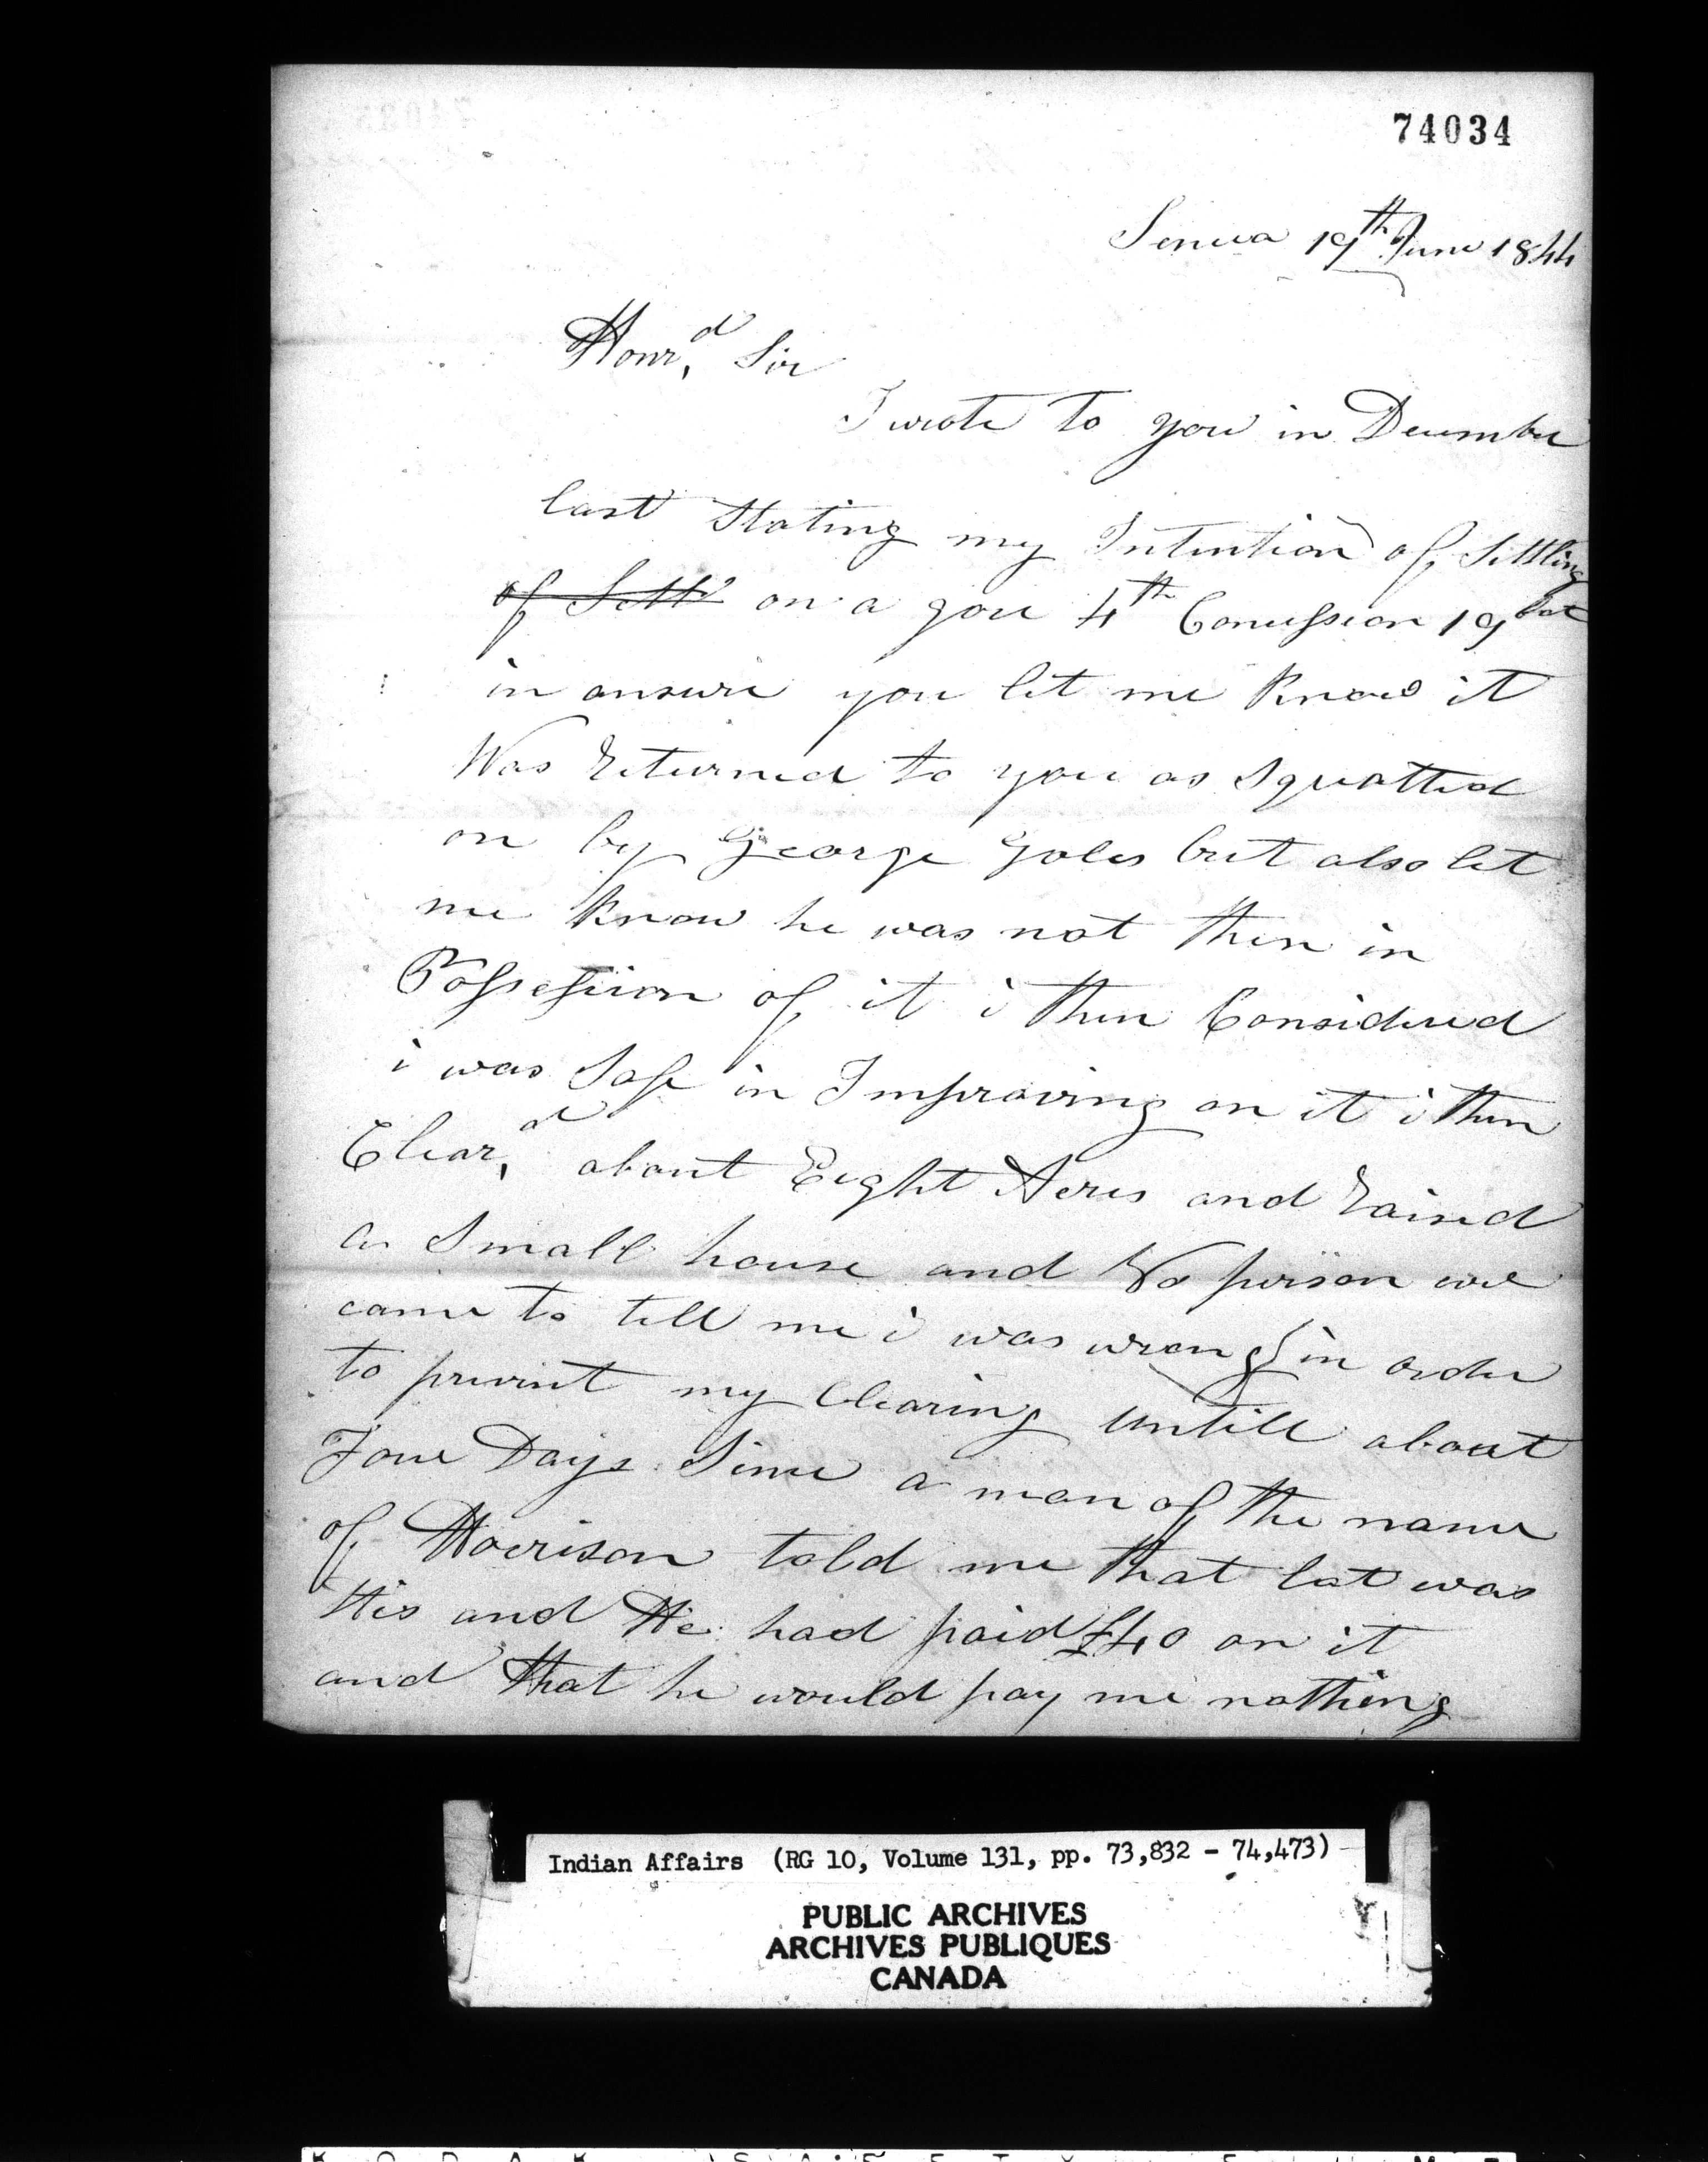 74034
Seneca 19th June 1844
Honr,d Sir
I wrote to you in December
last Stating my Intention of Settling
of Settl on a 4th Concession 19 lot
in answer you let me know it
Was Returned to you as Squatted
on by George Goles but also let
me know he was not then in
Possession of it i then Considered
i was Safe in Improving on it i then
Clear,d about Eight Acres and Raised
a Small house and No person
came to tell me i was wrong in order
to prevent my Clearing untill about
Four Days Since a man of the name
of Morrison told me that lot was
His and He had paid £40 on it
and that he would pay me nothing
Indian Affairs (RG 10, Volume 131, pp. 73,832 - 74,473)
PUBLIC ARCHIVES
ARCHIVES PUBLIQUES
CANADA